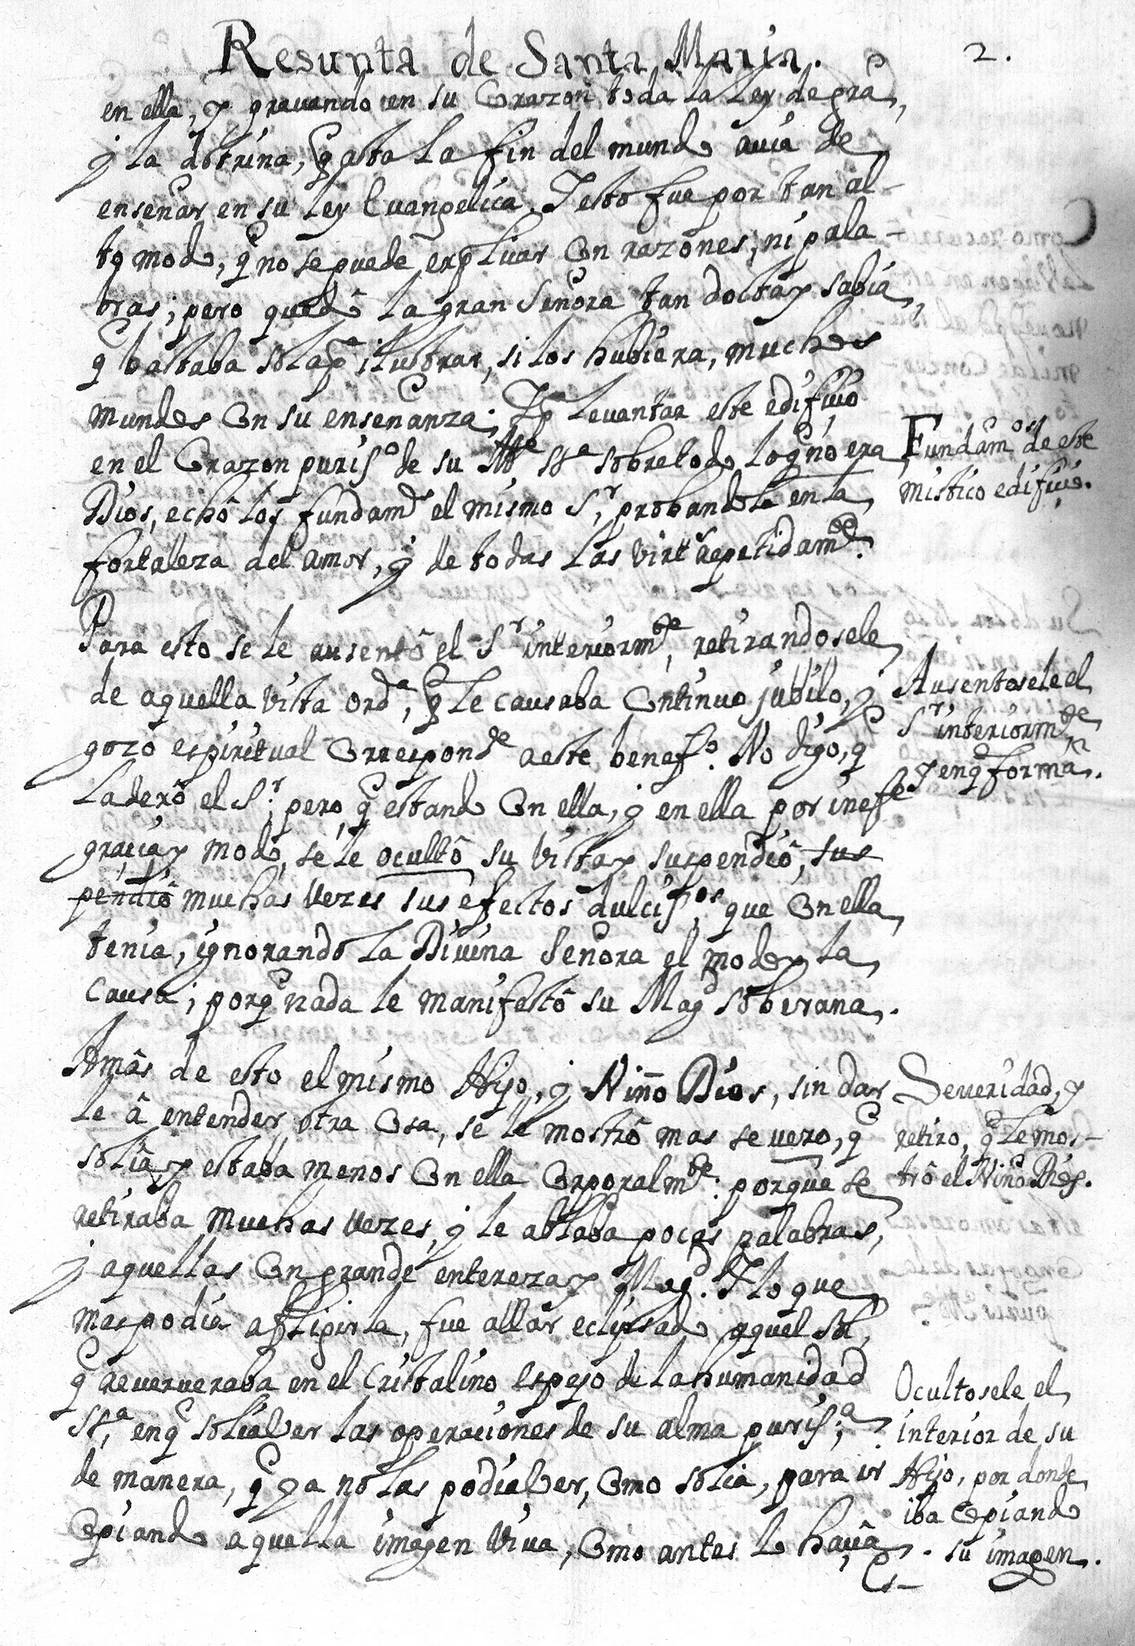 Resunta de Santa Maria. 2.
en ella, y gravando en su Corazon toda la Ley de gra,
y la dotrina, q asta la fin del mundo avia de
enseñar en su Ley Evangelica. I esto fue por tan al-
to modo, q no se puede explicar con razones, ni pala-
bras; pero quedô la gran Señora tan docta y sabia,
q bastaba sola pa ilustrar, si los hubiera, muchos
mundos con su enseñanza; I pa levantar este edificio
en el Corazon puriso de su Me sta sobre todo lo q no era
Dios, echô los fundamos el mismo Sr, probandole en la
fortaleza del amor, y de todas las virts repetidamte.
Fundamos de este
mistico edificio.
Para esto se le ausentô el Sr interiormte, retirandosele
de aquella vista orda, q le causaba continuo jubilo, y
gozo espiritual correspondte a este benefo. No digo, q
la dexô el Sr; pero q estando con ella, y en ella por inefe
gracia y modo, se le ocultô su vista y suspendiô, sus
pendiô muchas vezes sus efectos dulcisos que con ella
tenia, ignorando la Divina Señora el modo y la
causa; porq nada le manifestô su Magd soberana.
Ausentosele el
Sr interiormte
y en q forma.
Amâs de esto el mismo Hijo, y Niño Dios, sin dar
le â entender otra cosa, se le mostrô mas severo, q
solia y estaba menos con ella corporalmte: porque se
retiraba muchas vezes, y le ablaba pocas palabras,
y aquellas con grande entereza y Magd. I lo que
mas podia afligirla, fue allar eclipsado aquel sol,
q reververaba en el cristalino espejo de la humanidad
sta, en q solia ver las operaciones de su alma purisa;
de manera, q ya no las podia ver, como solia, para ir
copiando aquella imagen viva, como antes lo haviâ
Severidad, y
retiro, q le mos-
trô el Niño Dios.
Ocultosele el
interior de su
Hijo, por donde
iba copiando
su imagen.